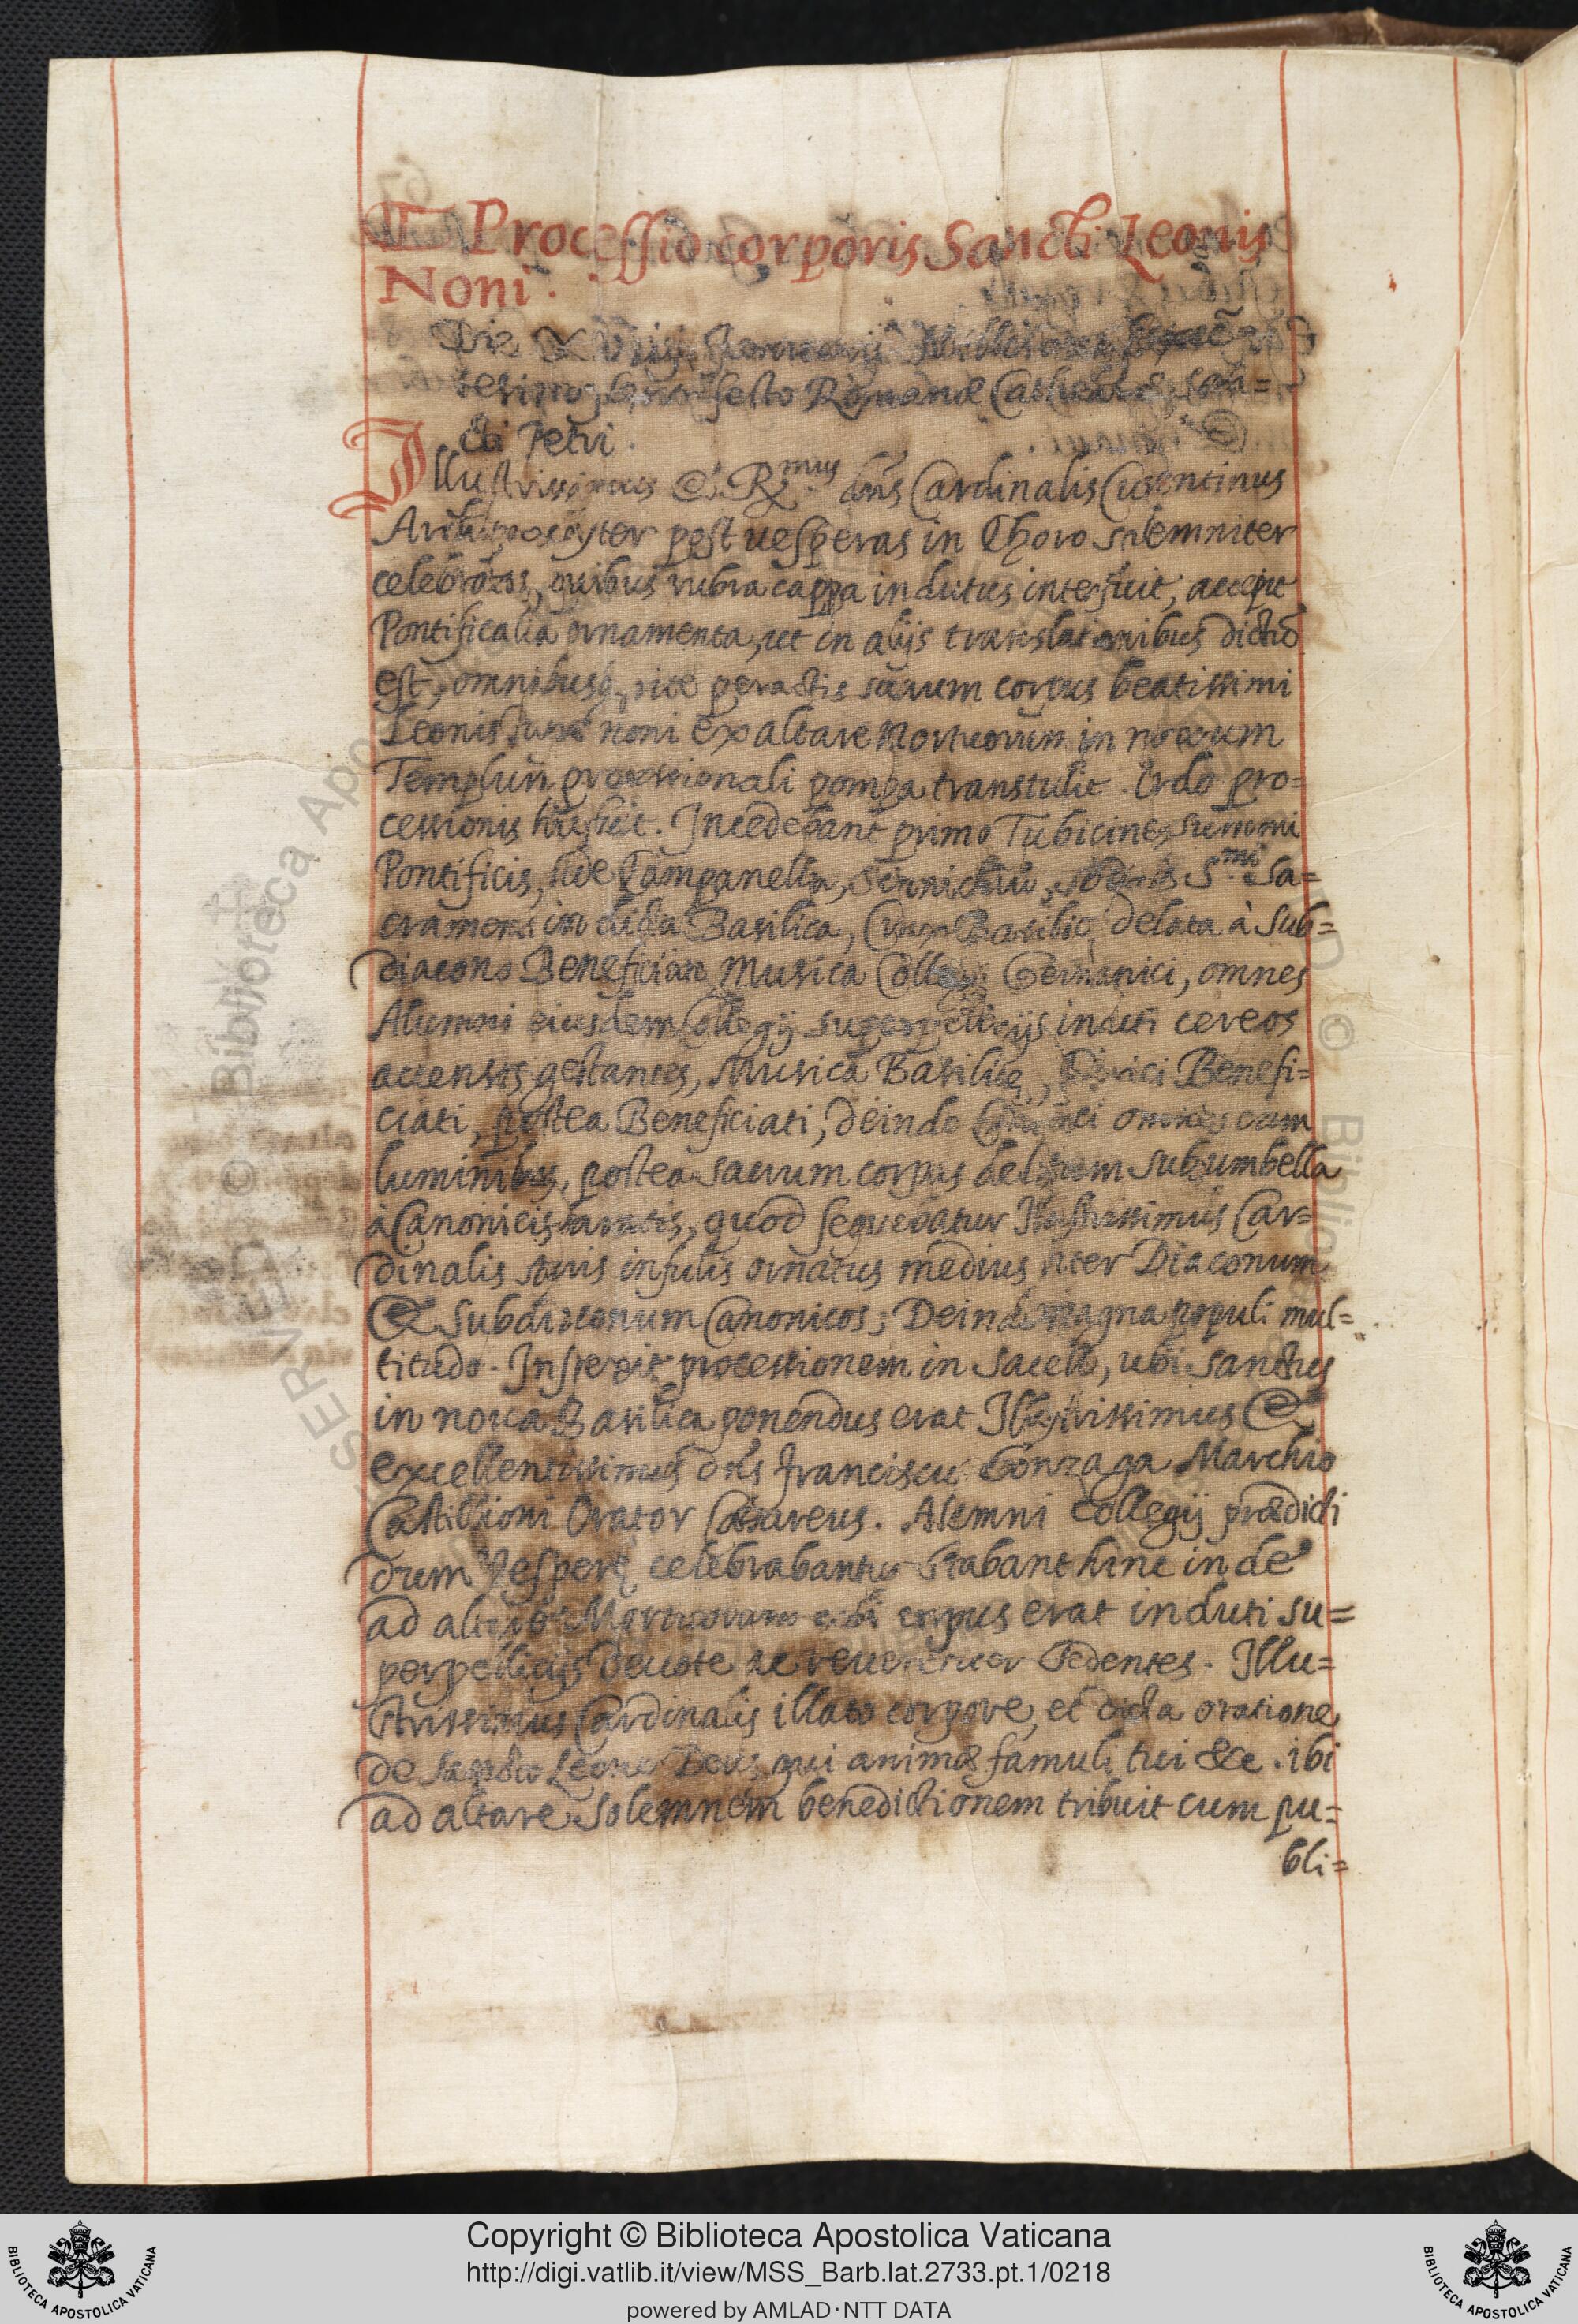 Processio corporis Sancti Leonis
Noni.
Die XVIII Januarij
festo Romanæ Cathedræ San=
cti Petri.
Illustrissimus & R.mus dn̄s Cardinalis Cusentinus
Archipresbyter post uesperas in Choro solemniter
celebratas, quibus rubra cappa indutus interfuit, accepit
Pontificalia ornamenta, ut in alijs translationibus dictū
est, omnibusq, rite peractis sacrum corpus beatissimi
Leonis Papæ noni ex altare Mortuorum in nouum
Templum processionali pompa transtulit. Ordo pro=
cessionis hic fuit. Incedebant primo Tubicines summi
Pontificis, inde Campanella, S.mi Sa=
cramenti in dicta Basilica, Crux Basilicę delata à Sub=
diacono Beneficiato Musica Collegij Germanici, omnes
Alumni eiusdem Collegij superpellicijs induti cereos
accensos gestantes, Musica Basilicę, Clerici Benefi=
ciati, postea Beneficiati, deinde Canonici omnes cum
luminibus, postea sacrum corpus delatum sub umbella
à Canonicis paratis, quod sequebatur Illustrissimus Car=
dinalis sacris infulis ornatus medius inter Diaconum
& Subdiaconum Canonicos; Deinde magna populi mul=
titudo. Inspexit processionem in sacello, ubi sanctus
in noua Basilica ponendus erat Illustrissimus &
excellentissimus dn̄s Franciscus Gonzaga Marchio
Castillioni Orator Cæsareus. Alumni Collegij prædicti
dum Vesperę celebrabantur stabant hinc inde
ad altare Mortuorum ubi corpus erat induti su=
perpellicijs deuote ac reuerenter sedentes. Illu=
strissimus Cardinalis illato corpore, et dicta oratione
de sancto Leone Deus qui animæ famuli tui &c. ibi
ad altare solemnem benedictionem tribuit cum pu=
bli=
Copyright © Biblioteca Apostolica Vaticana
http://digi.vatlib.it/view/MSS_Barb.lat.2733.pt.1/0218
powered by AMLAD·NTT DATA
BIBLIOTECA APOSTOLICA VATICANA
BIBLIOTECA APOSTOLICA VATICANA